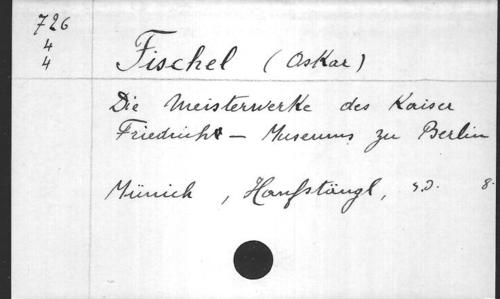 726
4
4
Fischel (Oskar)
Die Meisterwerke des Kaiser
Friedrich - Museums zu Berlin
Münich, Hanfstängl, s.d. 8.